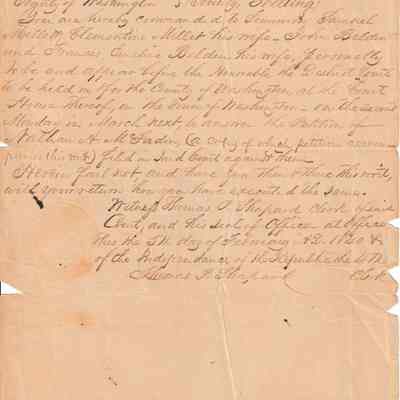 of Washington } County Greeting:
You are hereby commanded to Summon Samuel
Millett Clementine Millet his wife – John Belden
and Frances Belden his wife, personally
to be and appear before the Honorable the District Court
to be held in & for the County of Washington, at the Court
House thereof, in the Town of Washington – on the second
Monday in March next, to answer the Petition of
Nathan H. M. (a copy of which petition accom
panies this writ) filed in said Court against them
Herein fail not, and have you then & there this writ,
with your return how you have executed the same.
Witness Thomas P. Shepard Clerk of said
Court, and his seal of Office – at Office
this the 5th day of February A.D. 1840 &
of the Independence of the Republic the 4th
Thomas P. Shepard Clerk